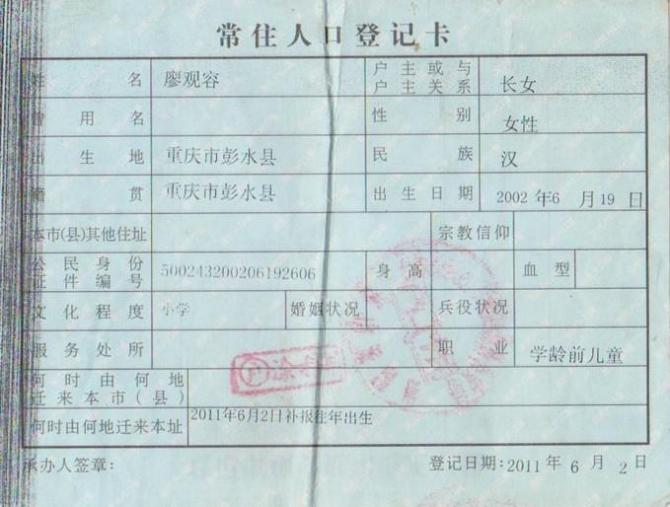 常住人口登记卡
姓名 廖观容 户主或与户主关系 长女
曾用名 性别 女性
出生地 重庆市彭水县 民族 汉
籍贯 重庆市彭水县 出生日期 2002年6月19日
本市(县)其他住址 宗教信仰
公民身份证件编号 500243200206192606 身高 血型
文化程度 小学 婚姻状况 兵役状况
服务处所 职业 学龄前儿童
何时由何地迁来本市(县)
何时由何地迁来本址 2011年6月2日补报往年出生
承办人签章: 登记日期:2011年6月2日